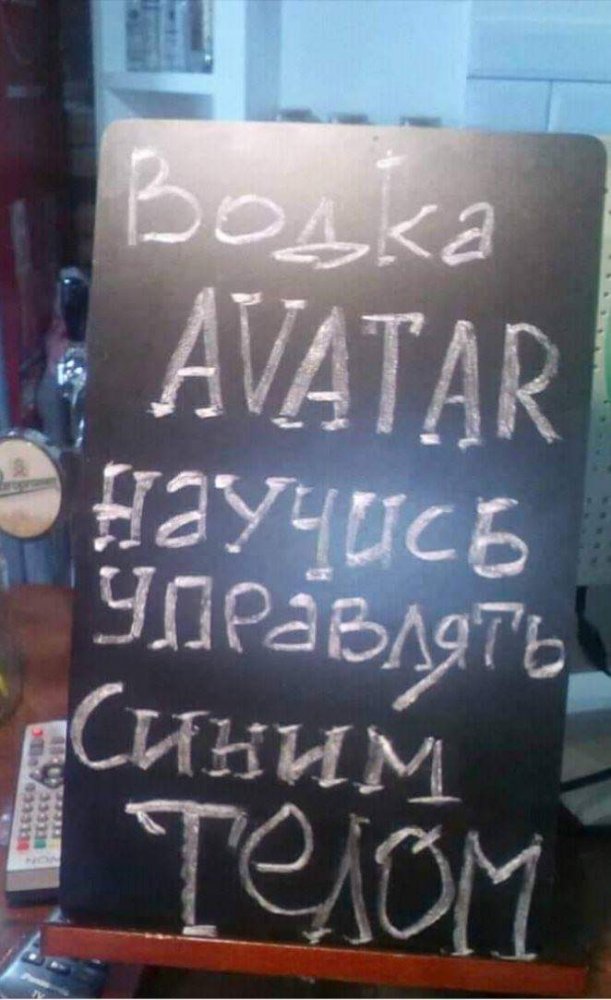 Водка
AVATAR
научись
управлять
синим
телом